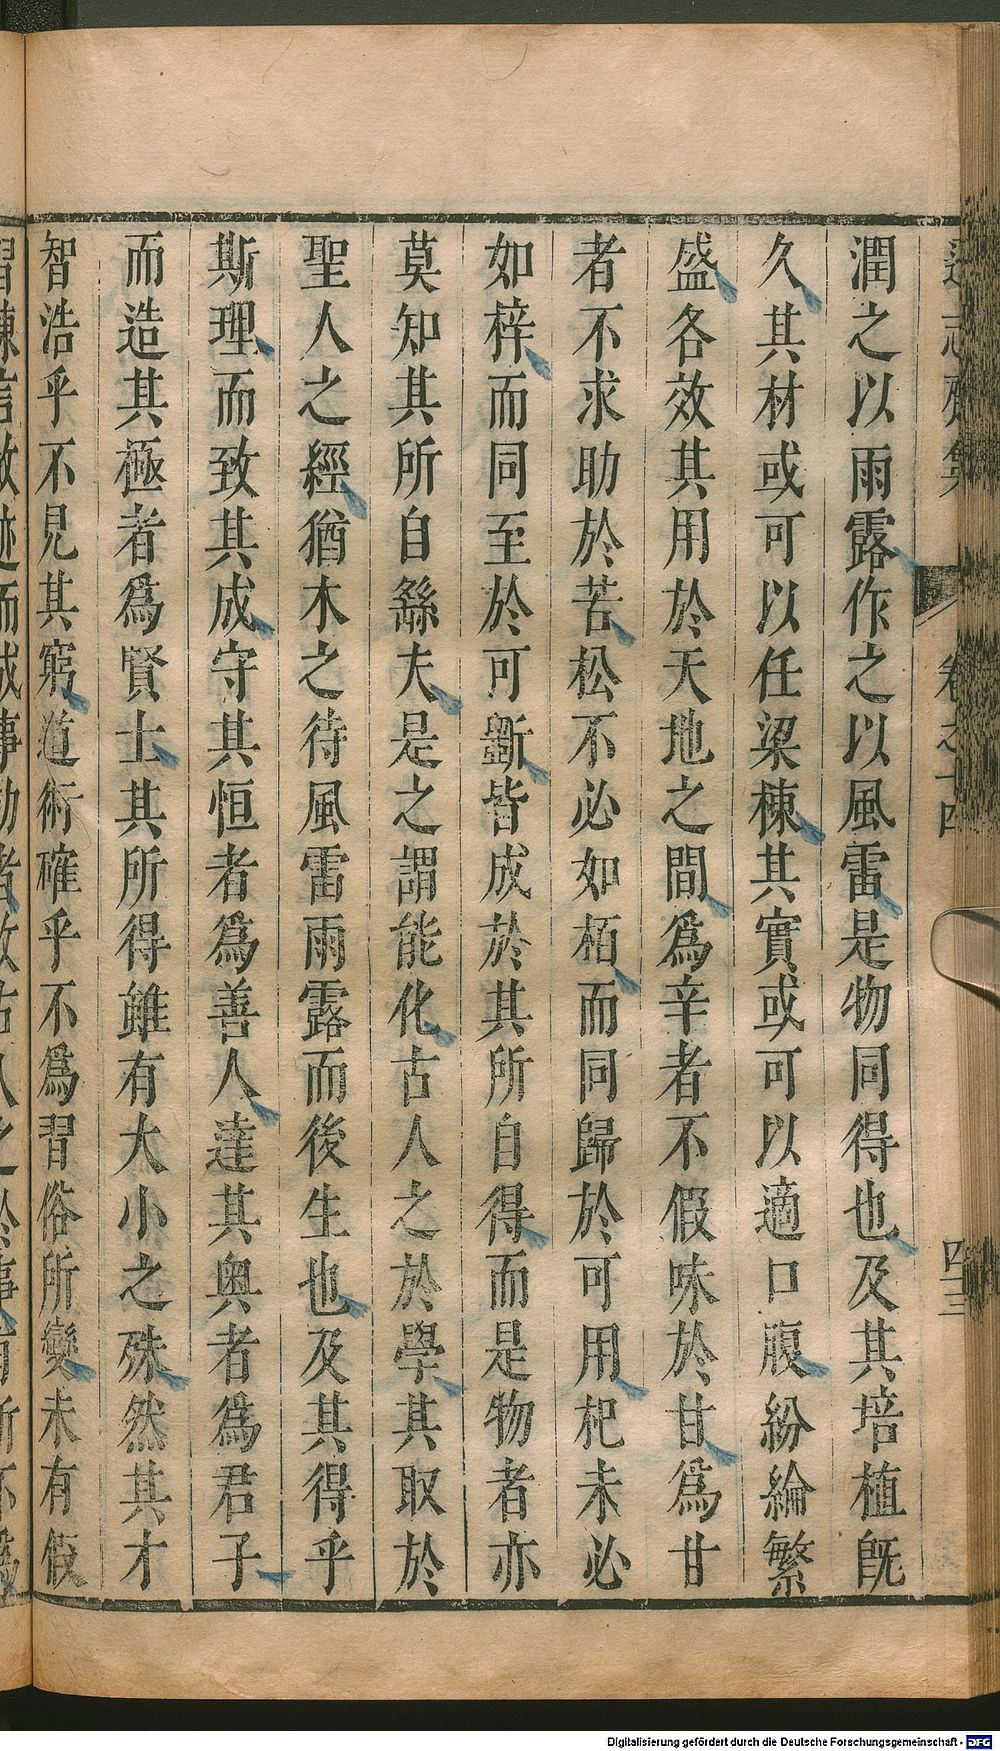 遜志齋集
卷之十四
四三
潤之以雨露作之以風雷是物同得也及其培植旣
久其材或可以任梁棟其實或可以適口腹紛綸繁
盛各效其用於天地之間爲辛者不假味於甘爲甘
者不求助於苦松不必如栢而同歸於可用杞未必
如梓而同至於可斵皆成於其所自得而是物者亦
莫知其所自繇夫是之謂能化古人之於學其取於
聖人之經猶木之待風雷雨露而後生也及其得乎
斯理而致其成守其恒者爲善人達其奥者爲君子
而造其極者爲賢士其所得雖有大小之殊然其才
智浩乎不見其窮道術確乎不爲習俗所變未有假
Digitalisierung gefördert durch die Deutsche Forschungsgemeinschaft - DFG